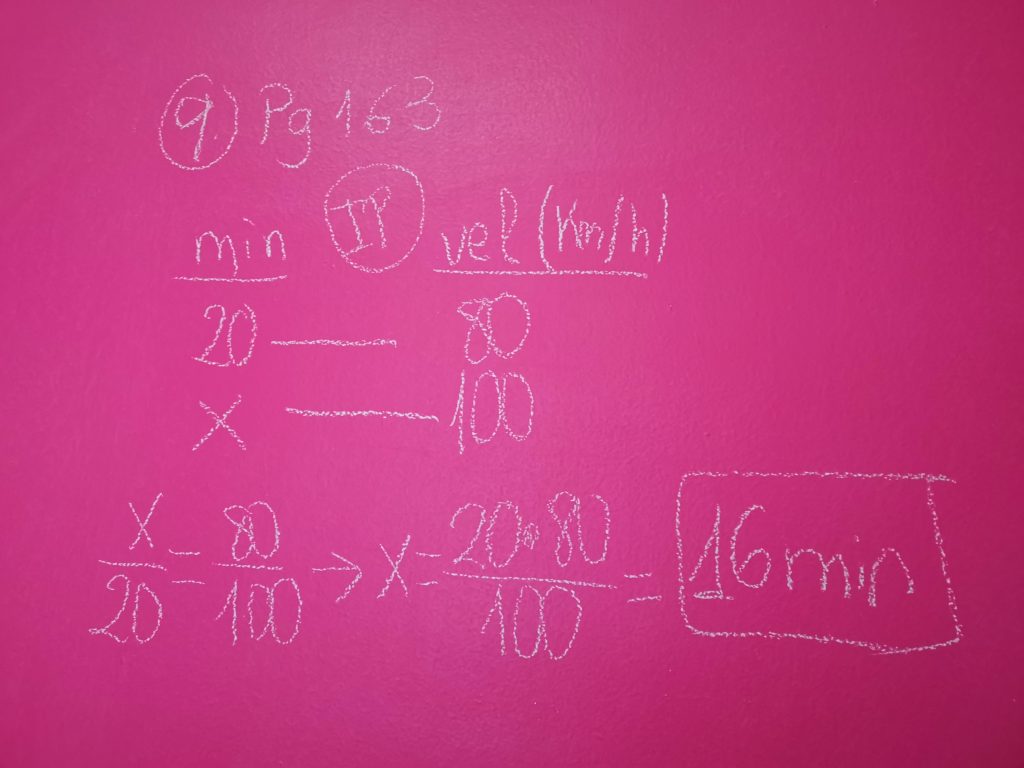 9 Pg 163
min IP vel (Km/h)
20 — 80
x — 100
x/20 = 80/100 → x = 20·80/100 = 16 min